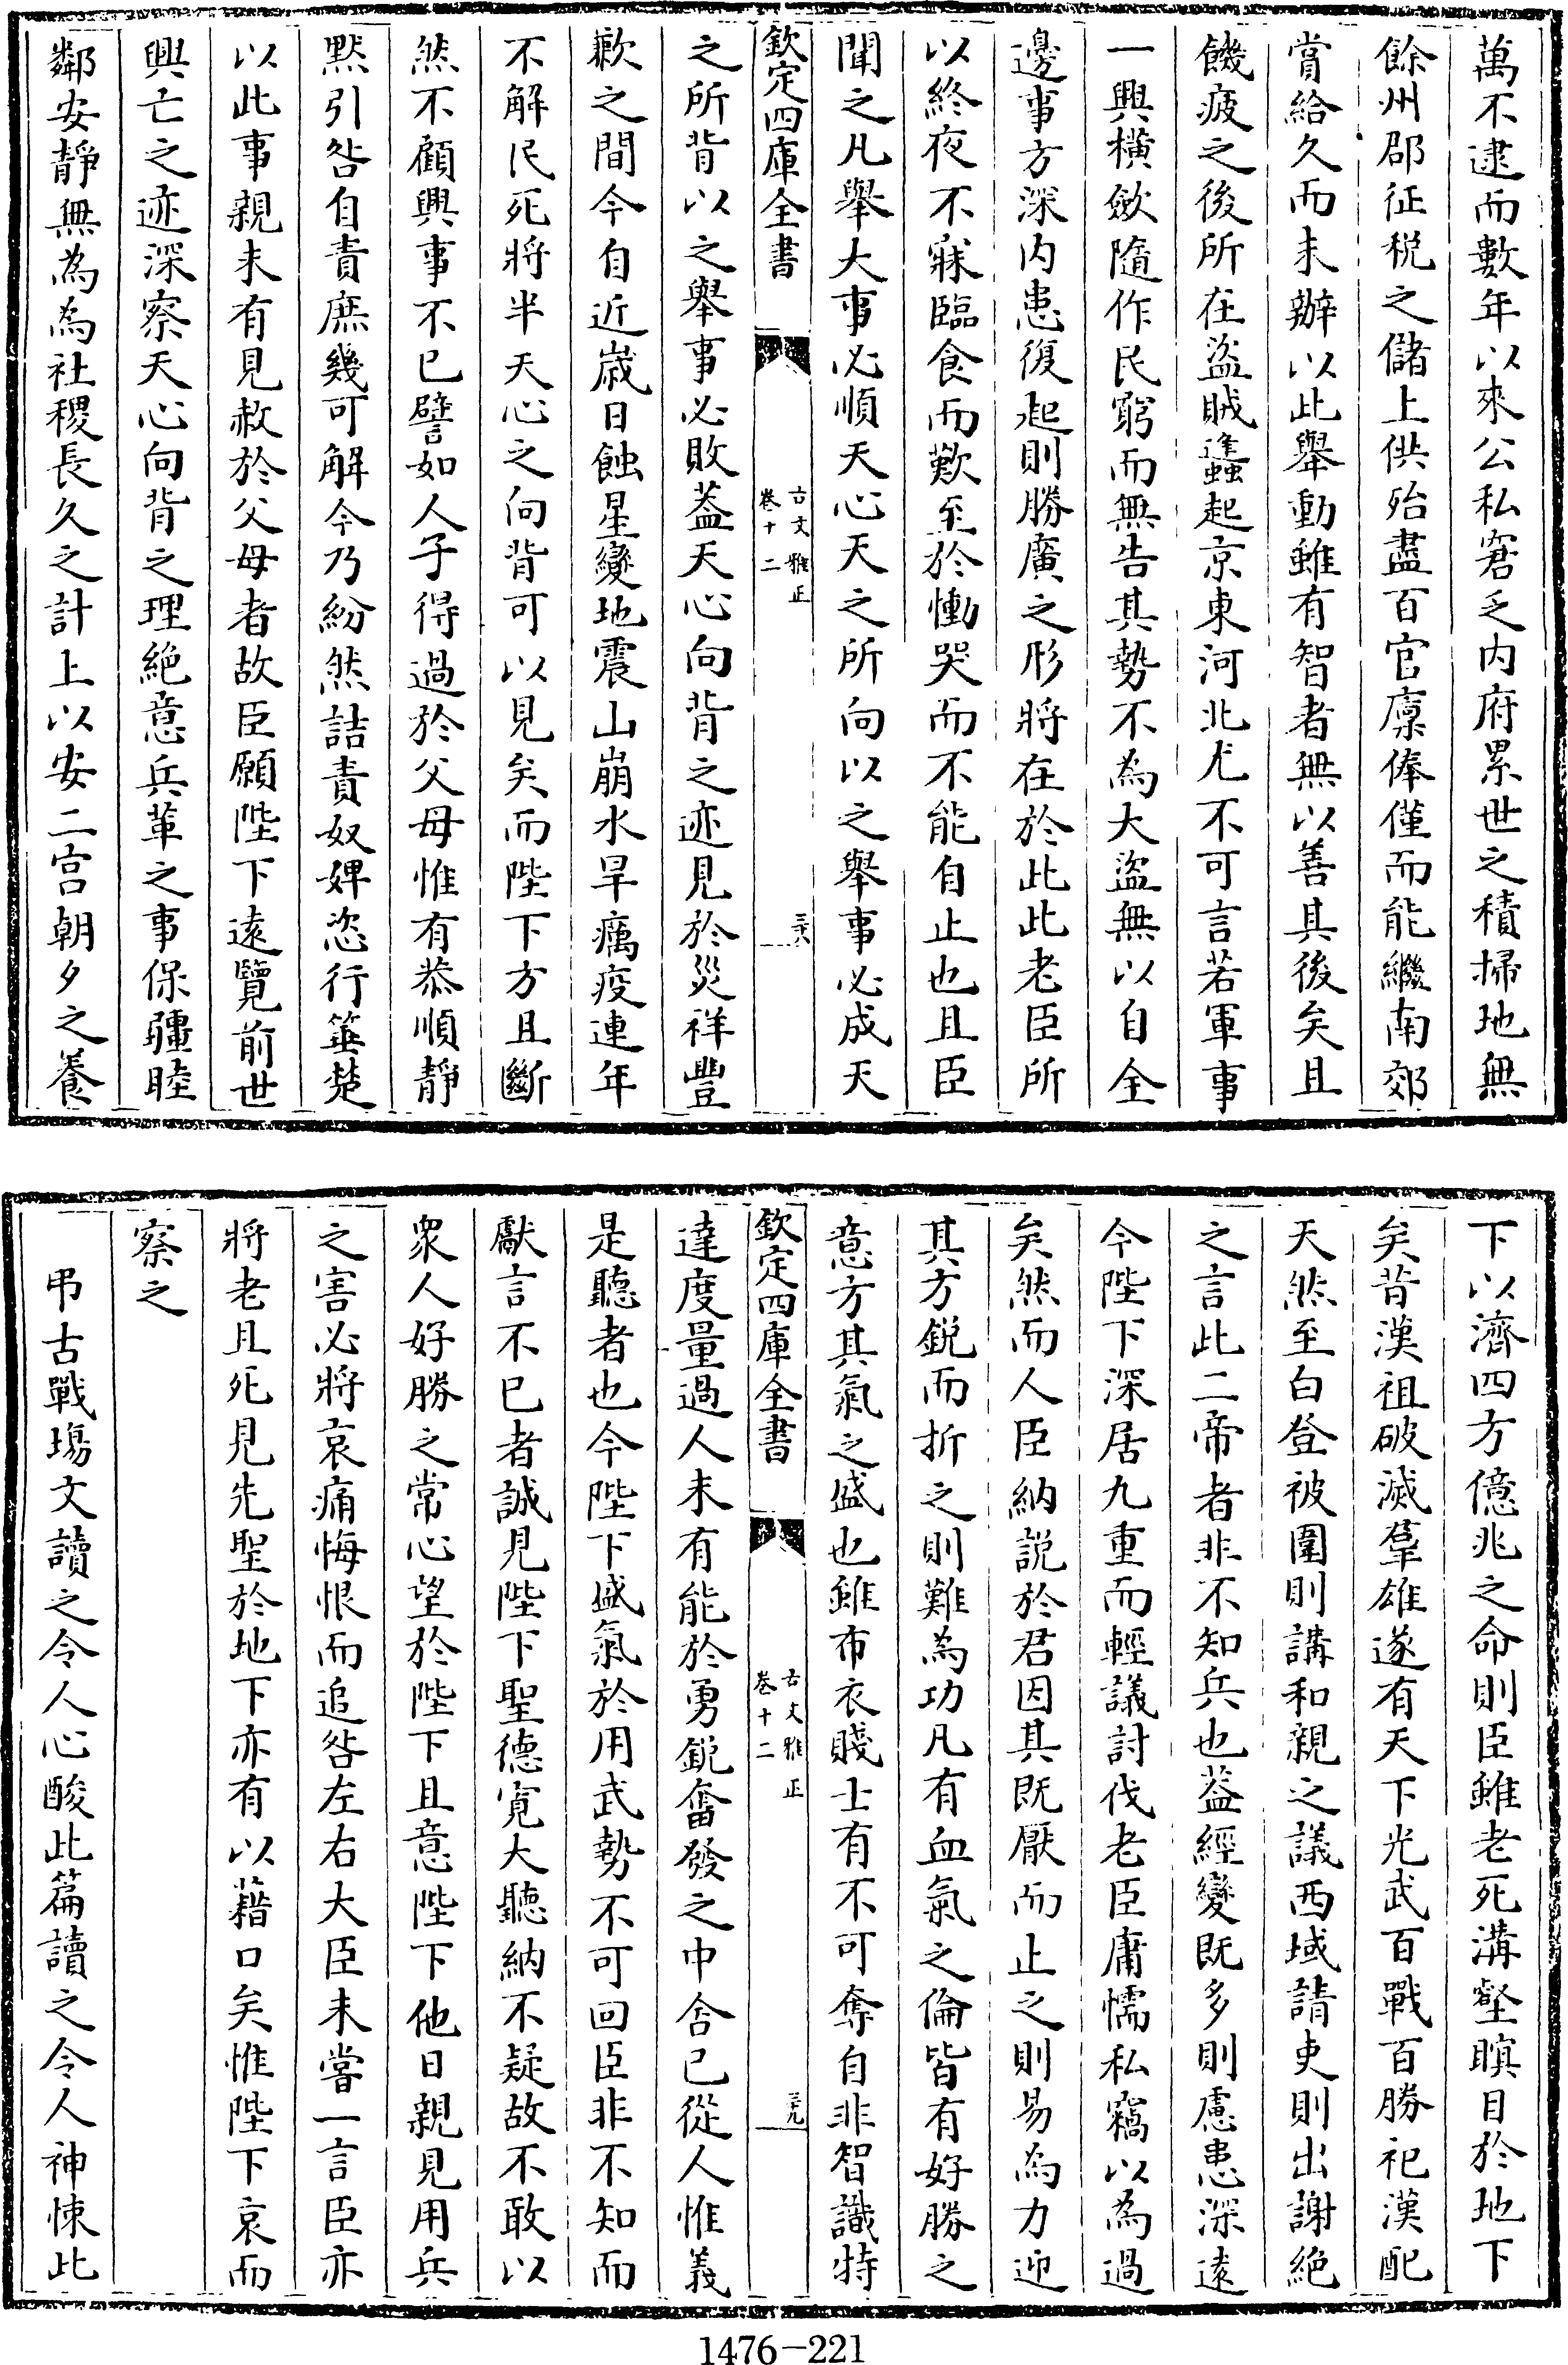 萬不逮而數年以來公私窘乏内府累世之積掃地無
餘州郡征税之儲上供殆盡百官廩俸僅而能繼南郊
賞給久而未辦以此舉動雖有智者無以善其後矣且
饑疲之後所在盜賊蠭起京東河北尤不可言若軍事
一興橫斂隨作民窮而無告其勢不為大盜無以自全
邊事方深内患復起則勝廣之形將在於此此老臣所
以終夜不寐臨食而歎至於慟哭而不能自止也且臣
聞之凡舉大事必順天心天之所向以之舉事必成天
欽定四庫全書
古文雅正
卷十二
三十八
之所背以之舉事必敗葢天心向背之迹見於災祥豐
歉之間今自近嵗日蝕星變地震山崩水旱癘疫連年
不解民死將半天心之向背可以見矣而陛下方且斷
然不顧興事不已譬如人子得過於父母惟有恭順靜
默引咎自責庶幾可解今乃紛然詰責奴婢恣行箠楚
以此事親未有見赦於父母者故臣願陛下逺覽前世
興亡之迹深察天心向背之理絶意兵革之事保疆睦
鄰安靜無為為社稷長久之計上以安二宫朝夕之養
下以濟四方億兆之命則臣雖老死溝壑瞑目於地下
矣昔漢祖破滅羣雄遂有天下光武百戰百勝祀漢配
天然至白登被圍則講和親之議西域請吏則出謝絶
之言此二帝者非不知兵也葢經變既多則慮患深逺
今陛下深居九重而輕議討伐老臣庸懦私竊以為過
矣然而人臣納説於君因其既厭而止之則易為力迎
其方鋭而折之則難為功凡有血氣之倫皆有好勝之
意方其氣之盛也雖布衣賤士有不可奪自非智識特
欽定四庫全書
古文雅正
卷十二
三十九
達度量過人未有能於勇鋭奮發之中舍已從人惟義
是聽者也今陛下盛氣於用武勢不可回臣非不知而
獻言不已者誠見陛下聖德寛大聽納不疑故不敢以
衆人好勝之常心望於陛下且意陛下他日親見用兵
之害必將哀痛悔恨而追咎左右大臣未嘗一言臣亦
將老且死見先聖於地下亦有以藉口矣惟陛下哀而
察之
弔古戰塲文讀之令人心酸此篇讀之令人神悚此
1476-221